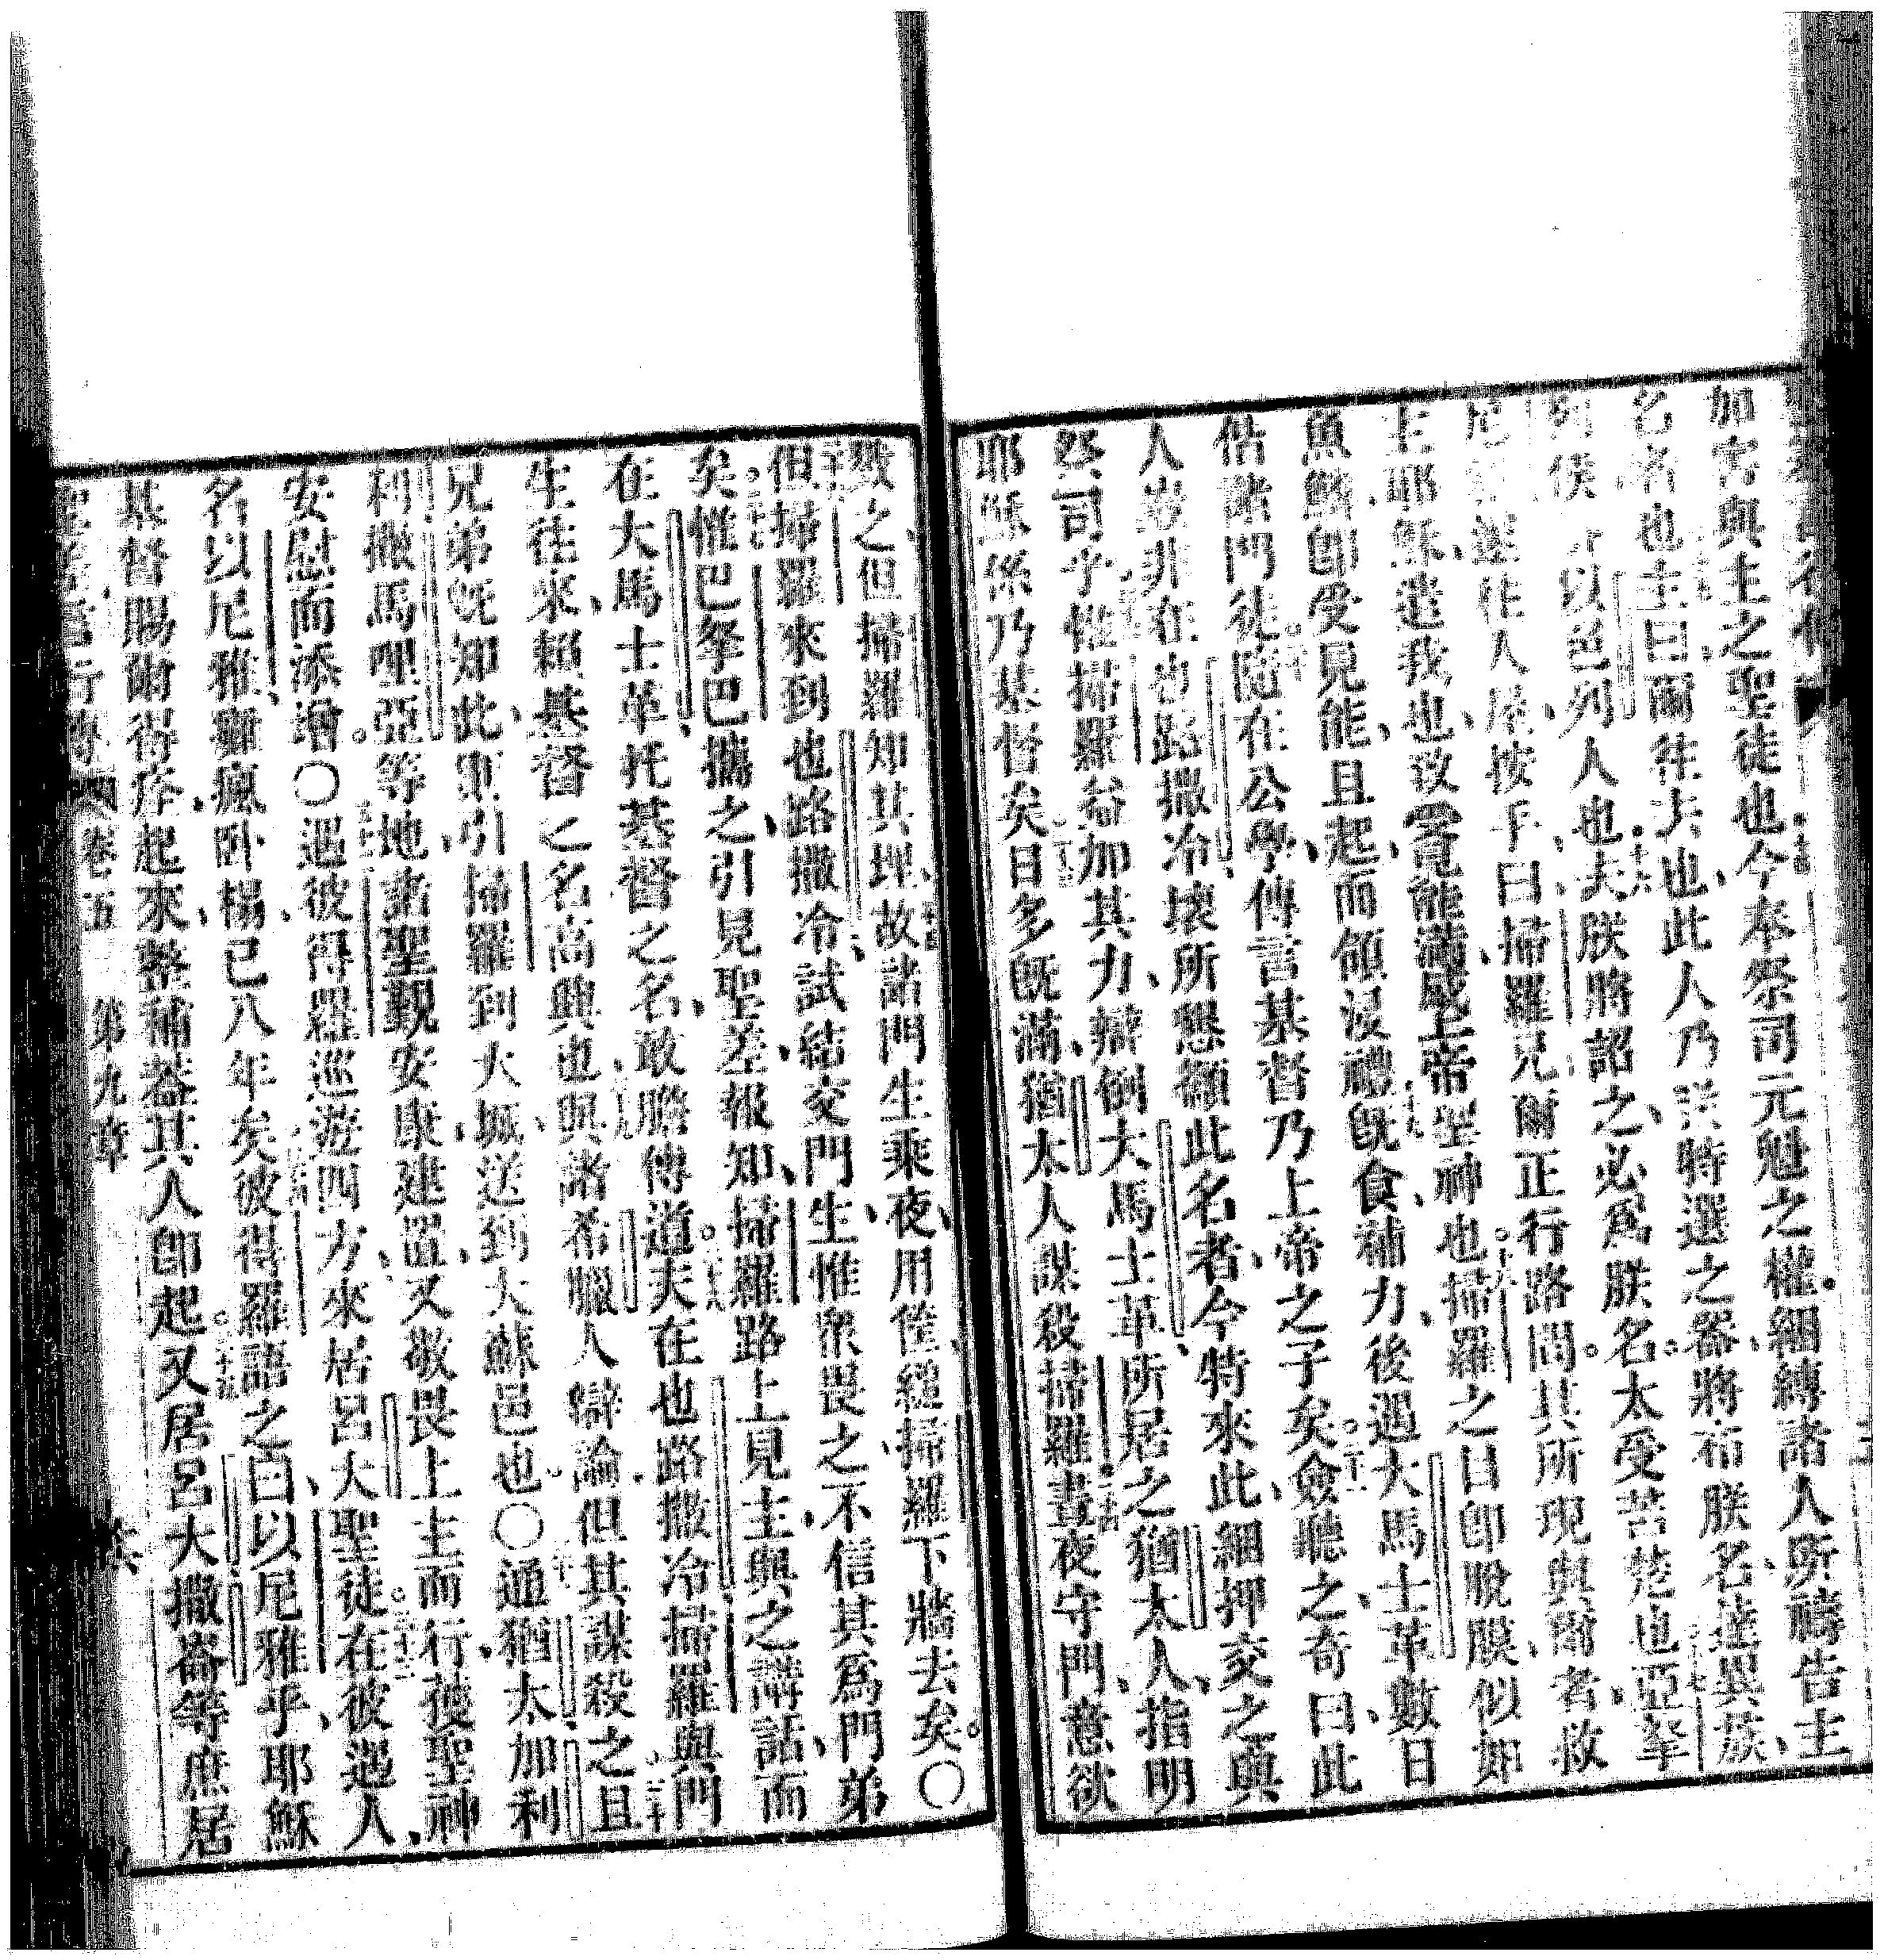 加害與主之聖徒也今奉祭司元魁之權綑縛諸人所禱告主
名者也主曰爾往夫也此人乃特選之器將布朕名達與族
列侯以色列人也夫朕將詔之必爲朕名太受苦楚也亞拏
尼遂往人屋按手曰掃羅兄爾正行路間其所現與爾者救
主耶穌遣我也致覔能滿感上帝聖神也掃羅之目卽脫膜似如
魚鱗卽受見能且起而領浸禮旣食補力後遇大馬士革數日
偕諸門徒隨在公學傳言基督乃上帝之子矣僉聽之奇曰此
人豈非在路撒冷壞所懇籲此名者今特來此綑押交之與
祭司乎惟掃羅益加其力辯倒大馬士革所居之猶太人指明
耶穌係乃基督矣日多旣滿猶太人謀殺掃羅晝夜守門意欲
毀之但掃羅知其埋故諸門生乘夜用筐縋掃羅下牆去矣〇
但掃羅來到也路撒冷試結交門生惟衆畏之不信其爲門弟
矣惟巴拏巴攜之引見聖差報知掃羅路上見主與之講話而
在大馬士革托基督之名敢膽傳道夫在也路撒冷掃羅與門
生往來賴基督之名高興也與諸希臘人辯論但其謀殺之且
兄弟旣知此事引掃羅到大堀送到大蘇邑也〇通猶太加利
利撒馬哩亞等地諸聖覡安康建置又敬畏上主而行獲聖神
安慰而添增〇遇彼得羅巡遊四方來居呂大聖徒在彼遇人
名以尼雅癱瘋臥榻已八年矣彼得羅語之曰以尼雅乎耶穌
基督賜爾得痊起來整補蓋其人卽起又居呂大撒崙等庶居
行傳 卷五 第九章